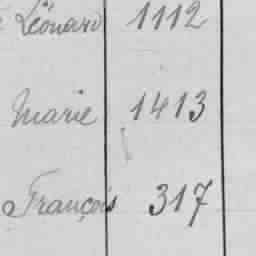 Léonard 1112
Marie 1413
François 317